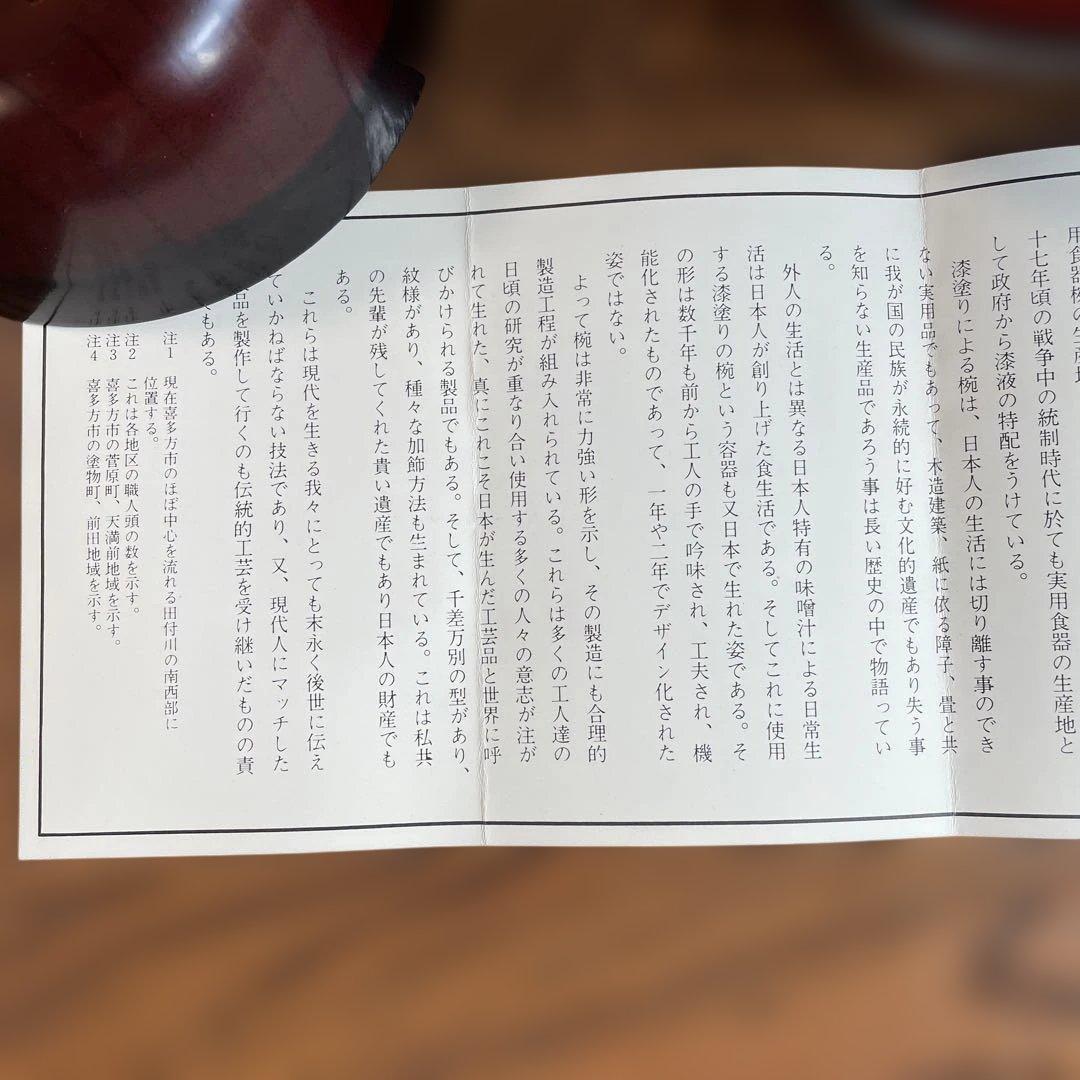 用食器椀の生産地
十七年頃の戦争中の統制時代に於ても実用食器の生産地と
して政府から漆液の特配をうけている。
漆塗りによる椀は、日本人の生活には切り離す事のでき
ない実用品でもあって、木造建築、紙に依る障子、畳と共
に我が国の民族が永続的に好む文化的遺産でもあり失う事
を知らない生産品であろう事は長い歴史の中で物語ってい
る。
外人の生活とは異なる日本人特有の味噌汁による日常生
活は日本人が創り上げた食生活である。そしてこれに使用
する漆塗りの椀という容器も又日本で生れた姿である。そ
の形は数千年も前から工人の手で吟味され、工夫され、機
能化されたものであって、一年や二年でデザイン化された
姿ではない。
よって椀は非常に力強い形を示し、その製造にも合理的
製造工程が組み入れられている。これらは多くの工人達の
日頃の研究が重なり合い使用する多くの人々の意志が注が
れて生れた、真にこれこそ日本が生んだ工芸品と世界に呼
びかけられる製品でもある。そして、千差万別の型があり、
紋様があり、種々な加飾方法も生まれている。これは私共
の先輩が残してくれた貴い遺産でもあり日本人の財産でも
ある。
これらは現代を生きる我々にとっても末永く後世に伝え
ていかねばならない技法であり、又、現代人にマッチした
品を製作して行くのも伝統的工芸を受け継いだものの責
もある。
注1 現在喜多方市のほぼ中心を流れる田付川の南西部に
位置する。
注2 これは各地区の職人頭の数を示す。
注3 喜多方市の菅原町、天満前地域を示す。
注4 喜多方市の塗物町、前田地域を示す。